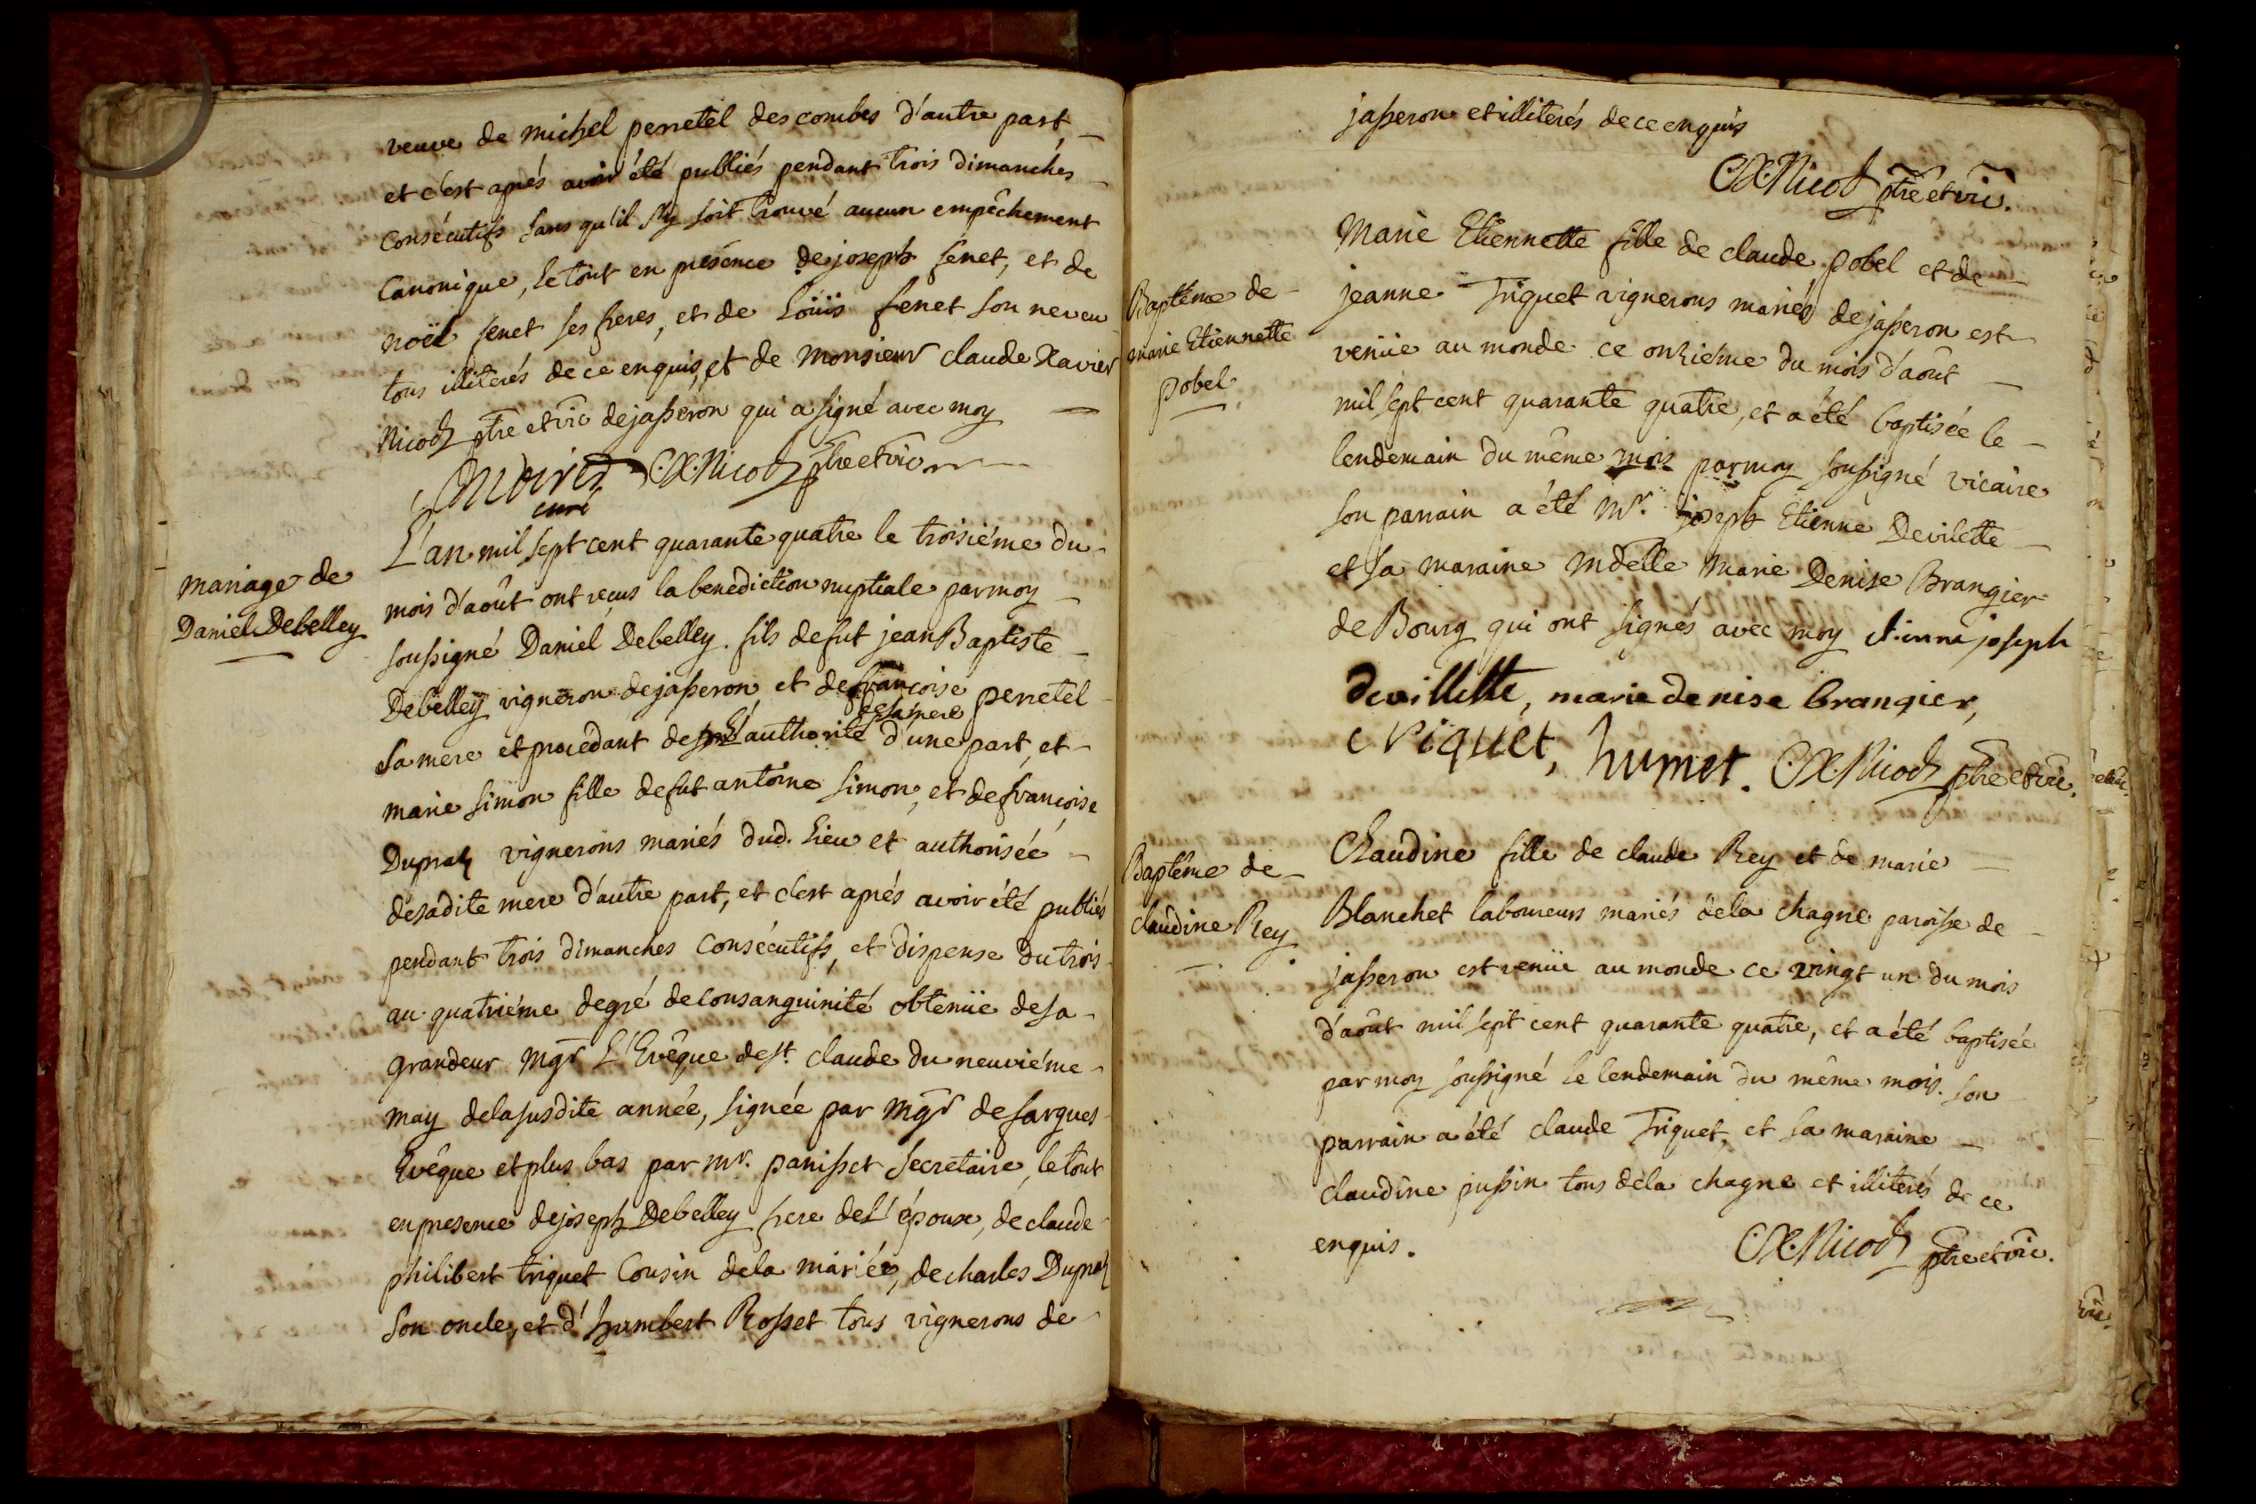 veuve de michel perretel des combes d'autre part,
et c'est aprés avoir été publiés pendant trois dimanches
Consécutifs sans qu'il s'y soit trouvé aucun empêchement
Canonique, le tout en présence de joseph fenet, et de
noël fenet ses freres, et de Loüis fenet son neveu
tous illiterés de ce enquis, et de monsieur claude Xavier
Nicod ptre et vic de jasseron qui a signé avec moy
C.X.Nicod ptre et vic
curé
mariage de
Daniel Debelley
L'an mil sept cent quarante quatre le troisiéme du
mois d'août ont reçus la benediction nuptiale par moy
soussigné Daniel Debelley fils de fut jean Baptiste
Debelley vigneron de jasseron, et de françoise perretel
de sa mere
sa mere et procédant de l'authorité d'une part, et
marie simon fille de fut antoine simon, et de françoise
Duprat vignerons mariés dud. lieu et authorisée
de sadite mere d'autre part, et c'est aprés avoir été publiés
pendant trois dimanches consécutifs, et dispense du trois
au quatriéme degré de consanguinité obtenüe de sa
grandeur Mgr L'Evêque de st. claude du neuviéme
may de la susdite année, signée par Mgr de fargues
Evêque et plus bas par mr. panisset secretaire, le tout
en presence de joseph Debelley frere de L'époux, de claude
philibert triquet Cousin de la mariée, de charles Duprat
son oncle, et d'humbert Rosset tous vignerons de
jasseron et illiterés de ce enquis
C.X.Nicod ptre et vic.
Baptême de
marie Etiennette
pobel
Marie Etiennette fille de claude pobel et de
jeanne Triquet vignerons mariés de jasseron est
venüe au monde ce onziéme du mois d'août
mil sept cent quarante quatre, et a été baptisée le
lendemain du même mois par moy soussigné vicaire
son parrain a été Mr. joseph Etienne Devilette
et sa maraine Mdelle Marie Denise Brangier
de Bourg qui ont signés avec moy etienne joseph
devillette, marie denise brangier,
triquet, humet. C.X.Nicod ptre et vic.
Baptême de
claudine Rey
Claudine fille de claude Rey et de marie
Blanchet laboureurs mariés de la chagne paroisse de
jasseron est venüe au monde ce vingt un du mois
d'août mil sept cent quarante quatre, et a été baptisée
par moy soussigné le lendemain du même mois. son
parrain a été claude Triquet, et sa maraine
claudine pussin tous de la chagne et illiterés de ce
enquis.
C.X.Nicod ptre et vic.